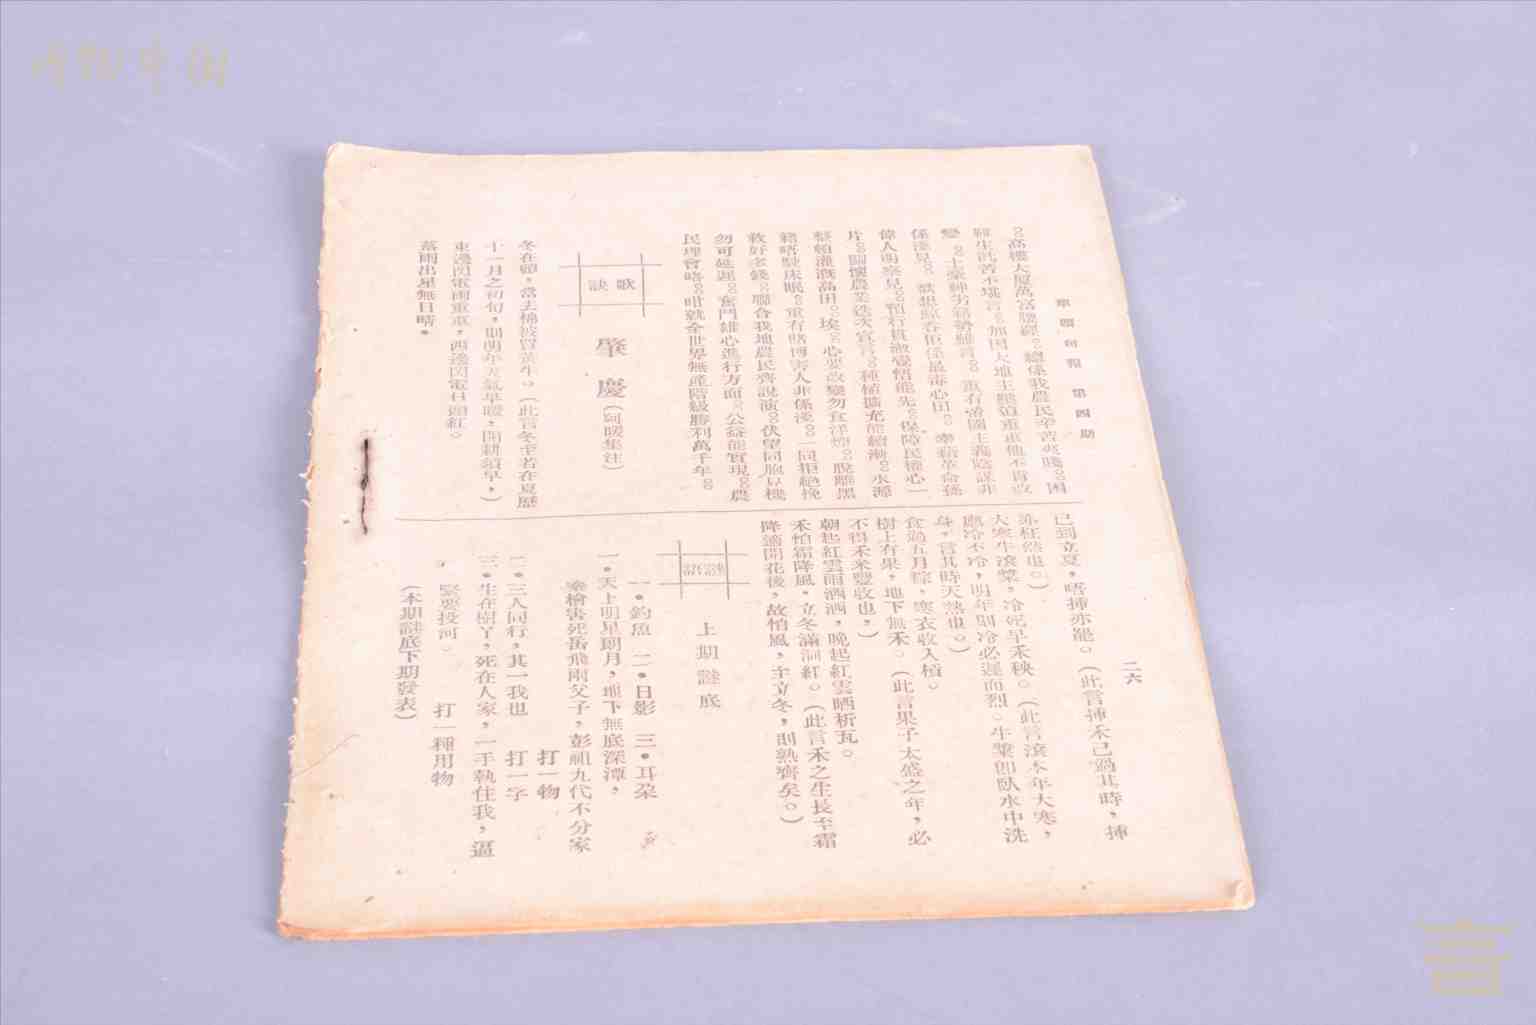 犂頭旬報 第四期
二六
高樓大厦萬富膽經。總係我農民辛苦夷賤。困
難生活苦不堪言。加困大地主態道重重他不肯改
變。土豪紳劣籍勢難言。重有帝國主義陰謀非
偉人明察見。預行貫澈變悟能先。保障民權心一
片。關懷農業迭次宣言。種植擴充能續漸。水源
整頓灌漑高田。埃。心要改變勿食洋烟。脫離黑
籍唔駛床眠。重有賭博害人非係淺。一同拒絕挽
救好多錢。聯合我地農民齊說演。伏望同胞見機
勿可延遲。奮鬥雄心進行方面。公益能實現。農
民理會咯。咁就全世界無產階級勝利萬千年。
歌訣
肇慶(阿暖集註)
冬在頭，當去棉被買黃牛。(此言冬至若在夏歷
十一月之初旬，則明年天氣早暖，開耕須早，)
東邊閃電雨重重，西邊閃電日頭紅。
落雨出星無日晴。
已到立夏，唔揷亦罷。(此言揷禾已過其時，揷
亦枉然也。)
大寒牛滾漿，冷死早禾秧。(此言滾本年大寒，
應冷不冷，明年則冷必遲而烈。牛漿卽臥水中洗
身，言其時天熱也。)
食過五月粽，寒衣收入槓。
樹上有果，地下無禾。(此言果子太盛之年，必
不得禾米豐收也，)
朝起紅雲雨洒洒，晚起紅雲晒析瓦。
禾怕霜降風，立冬滿洞紅。(此言禾之生長至霜
降適開花後，故怕風，至立冬，則熟齊矣。)
謎語
上期謎底
一•釣魚 二•日影 三•耳朶
一•天上明星朗月，地下無底深潭，
秦檜害死岳飛兩父子，彭祖九代不分家
打一物
二•三人同行，其一我也 打一字
三•生在樹丫，死在人家，一手執住我，逼
緊要投河。 打一種用物
(本期謎底下期發表)